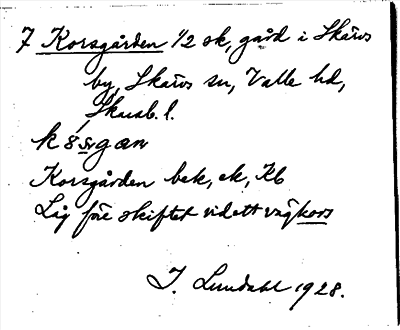 7 Korsgården 1/2 sk, gård i Skärvs
by, Skärvs sn, Valle hd,
Skarab. l.
Korsgården bek, ek, Kb
Låg före skiftet vid ett vägkors
I. Lundahl 1928.